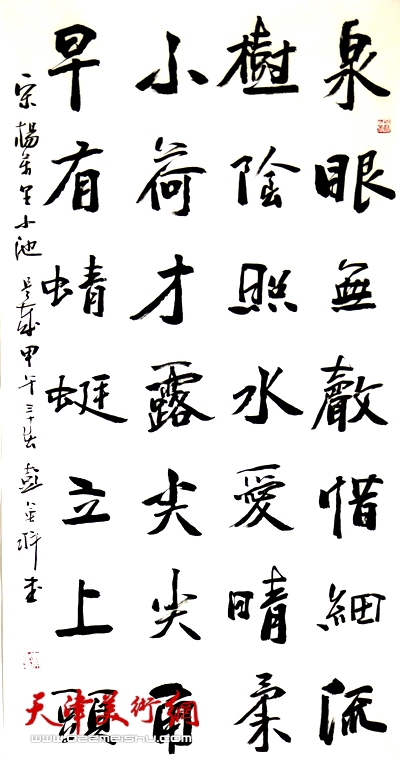 泉眼無聲惜細流
樹陰照水愛晴柔
小荷才露尖尖角
早有蜻蜓立上頭
宋楊万里小池 歲甲午 書
天津美術網
www.022meishu.com